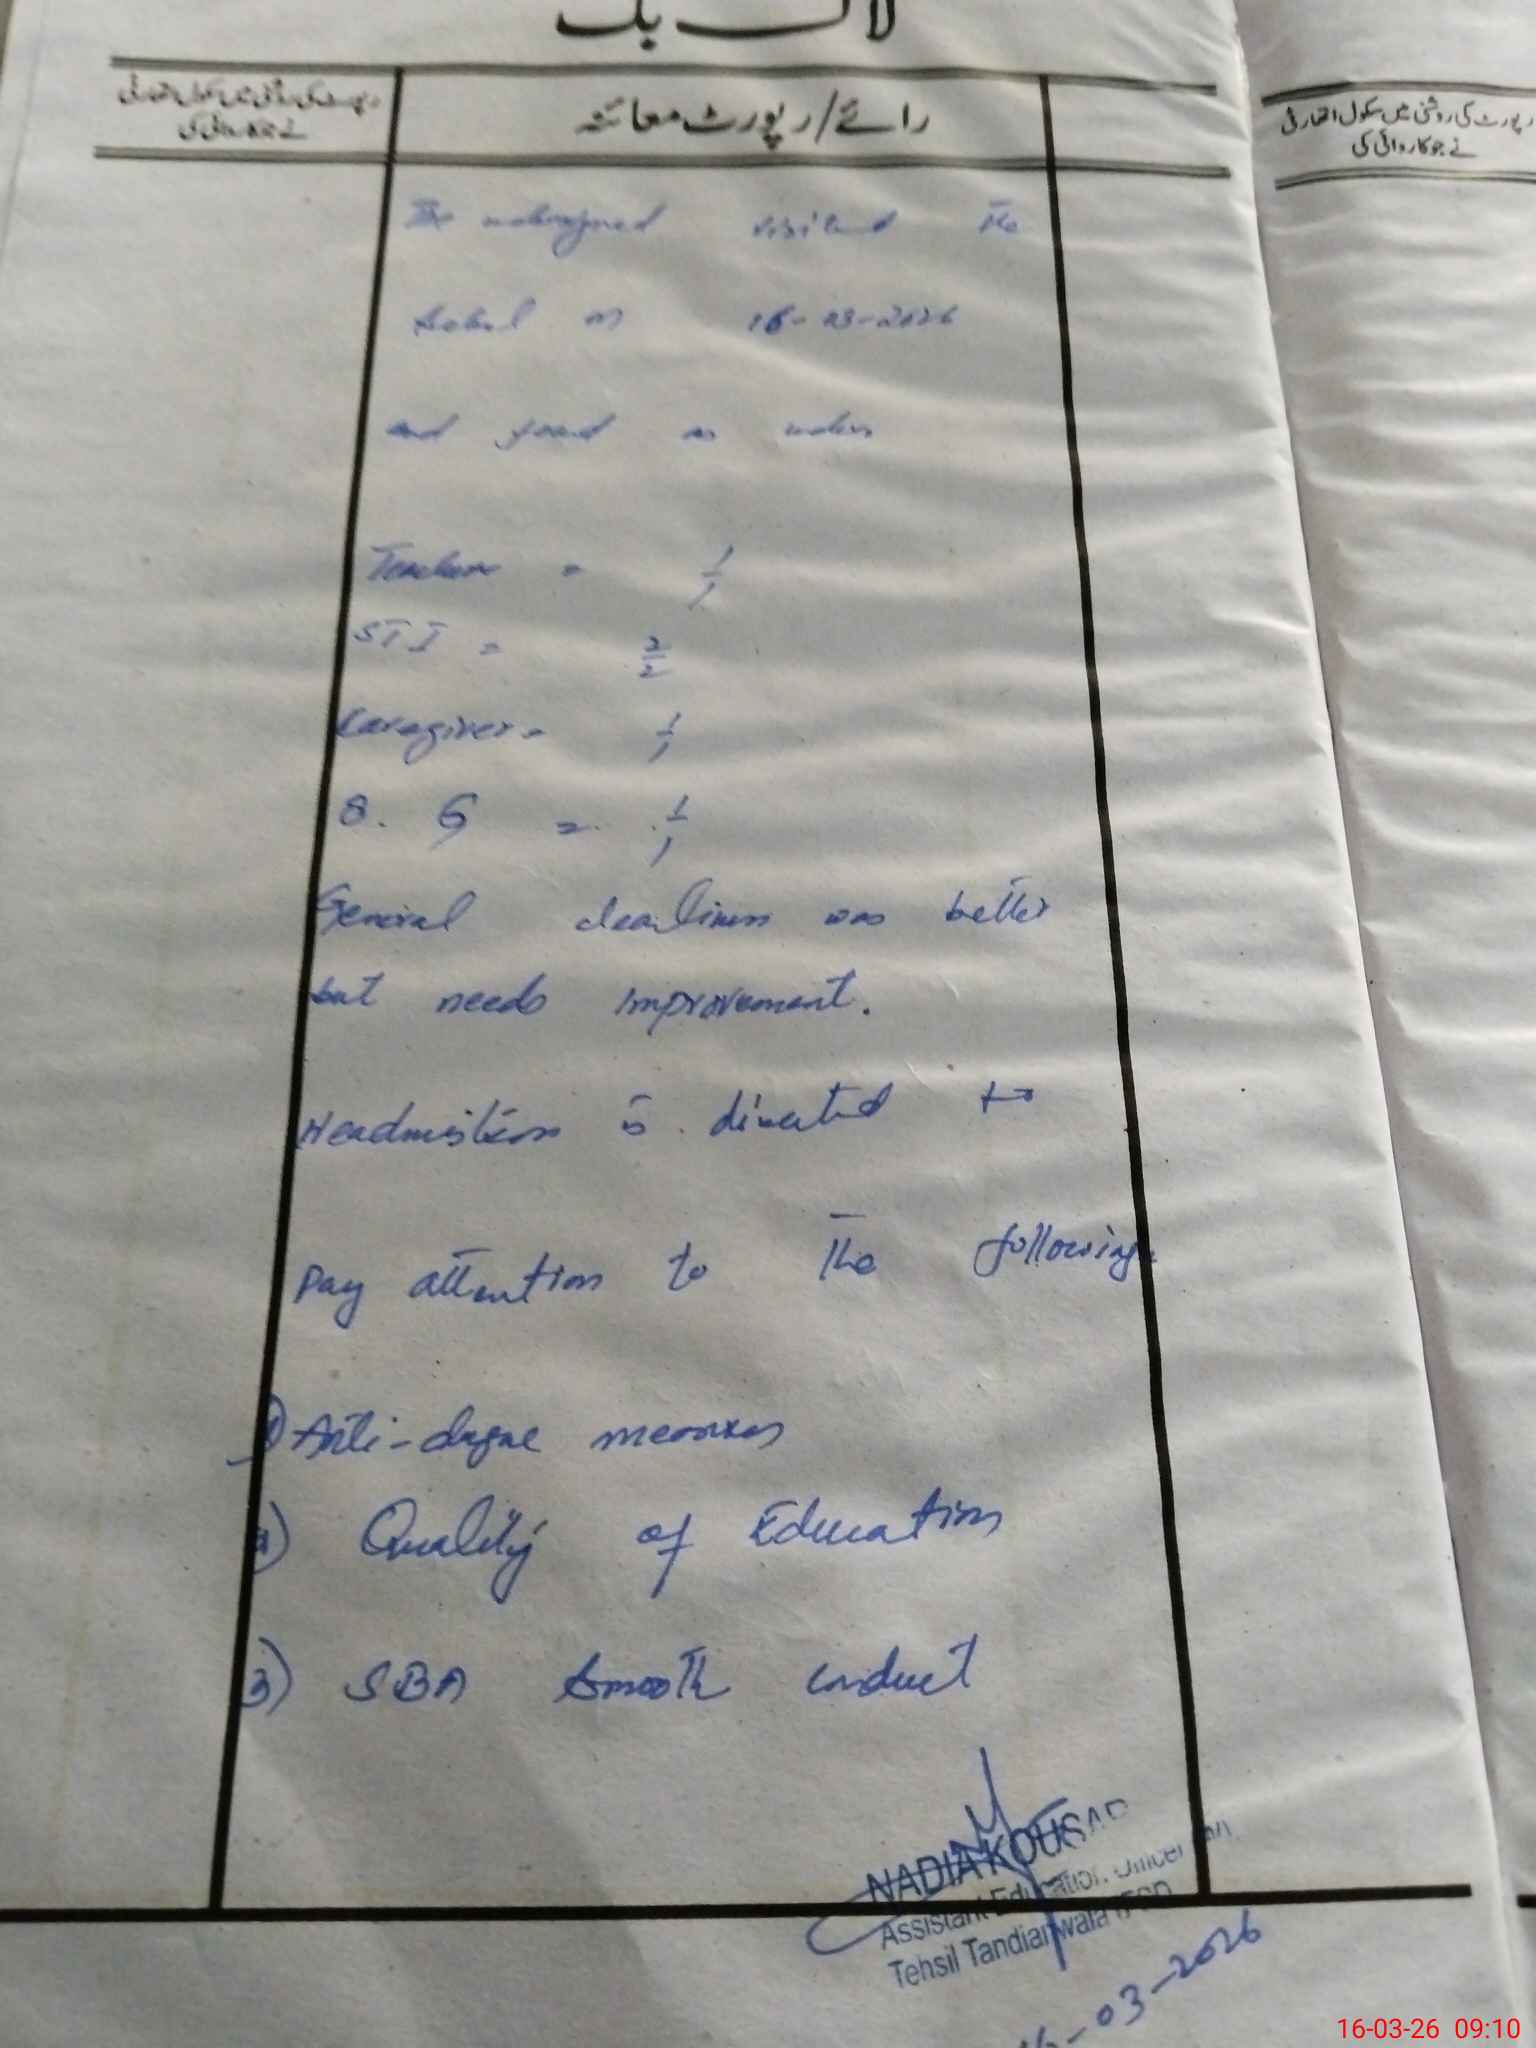 لاگ بک
رپورٹ کی روشنی میں سکول اتھارٹی
نے جو کاروائی کی
رائے/رپورٹ معائنہ
The undersigned visited the
school on 16-03-2026
and found as under
Teacher = 1/1
STI = 2/2
Caregiver = 1/1
S. G = 1/1
General cleanliness was better
but needs improvement.
Headmistress is directed to
Pay attention to the following.
1) Anti-dengue measures
2) Quality of Education
3) SBA smooth conduct
NADIA KOUSAR
Assistant Education Officer
Tehsil Tandianwala FSD
16-03-2026
رپورٹ کی روشنی میں سکول اتھارٹی
نے جو کاروائی کی
16-03-26 09:10